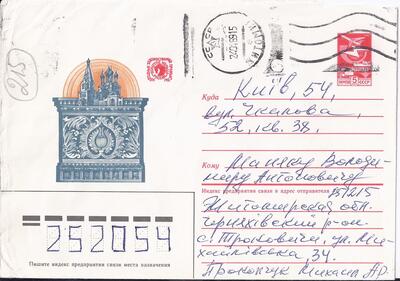 215
24 02 89 15
5к
ПОЧТА СССР
Куда
Київ, 54,
вул. Чкалова,
52, кв. 38.
Кому
Маняку Володи-
миру Антоновичу
Индекс предприятия связи и адрес отправителя
Житомирская обл.
Черняхівский р-он
с. Троковичі, ул. Ми-
хайлівська, 34.
Прокопчук Михайл
252054
Пишите индекс предприятия связи места назначения